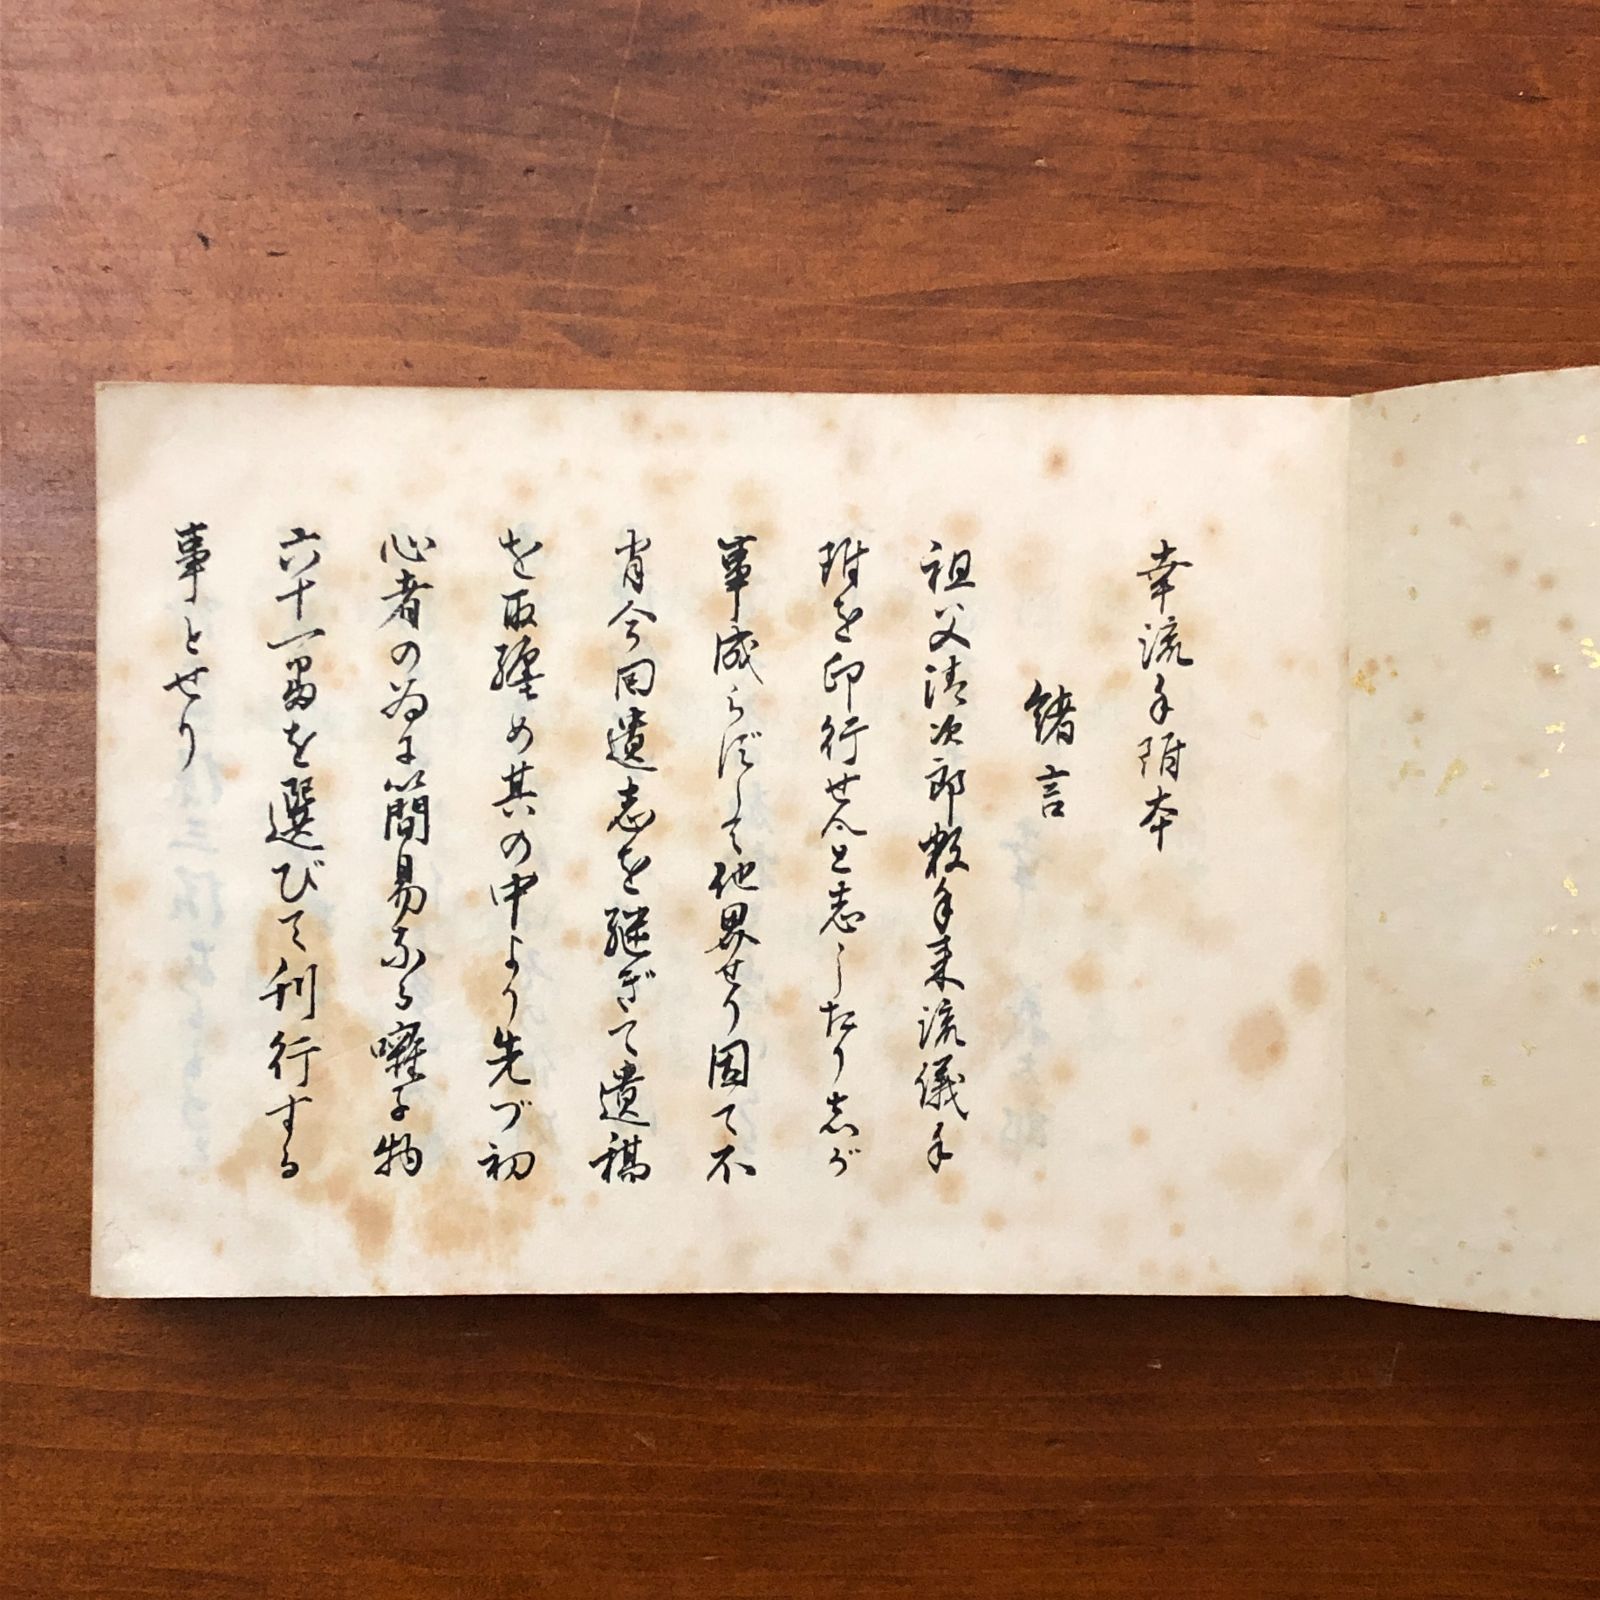 幸流手附本
緒言
祖父清次郎数年来流儀手
附を印行せんと志したりしが
事成らずして他界せり因て不
肖今回遺志を継ぎて遺稿
を取纏め其の中より先づ初
心者の為に簡易なる囃子物
六十一番を選びて刊行する
事とせり